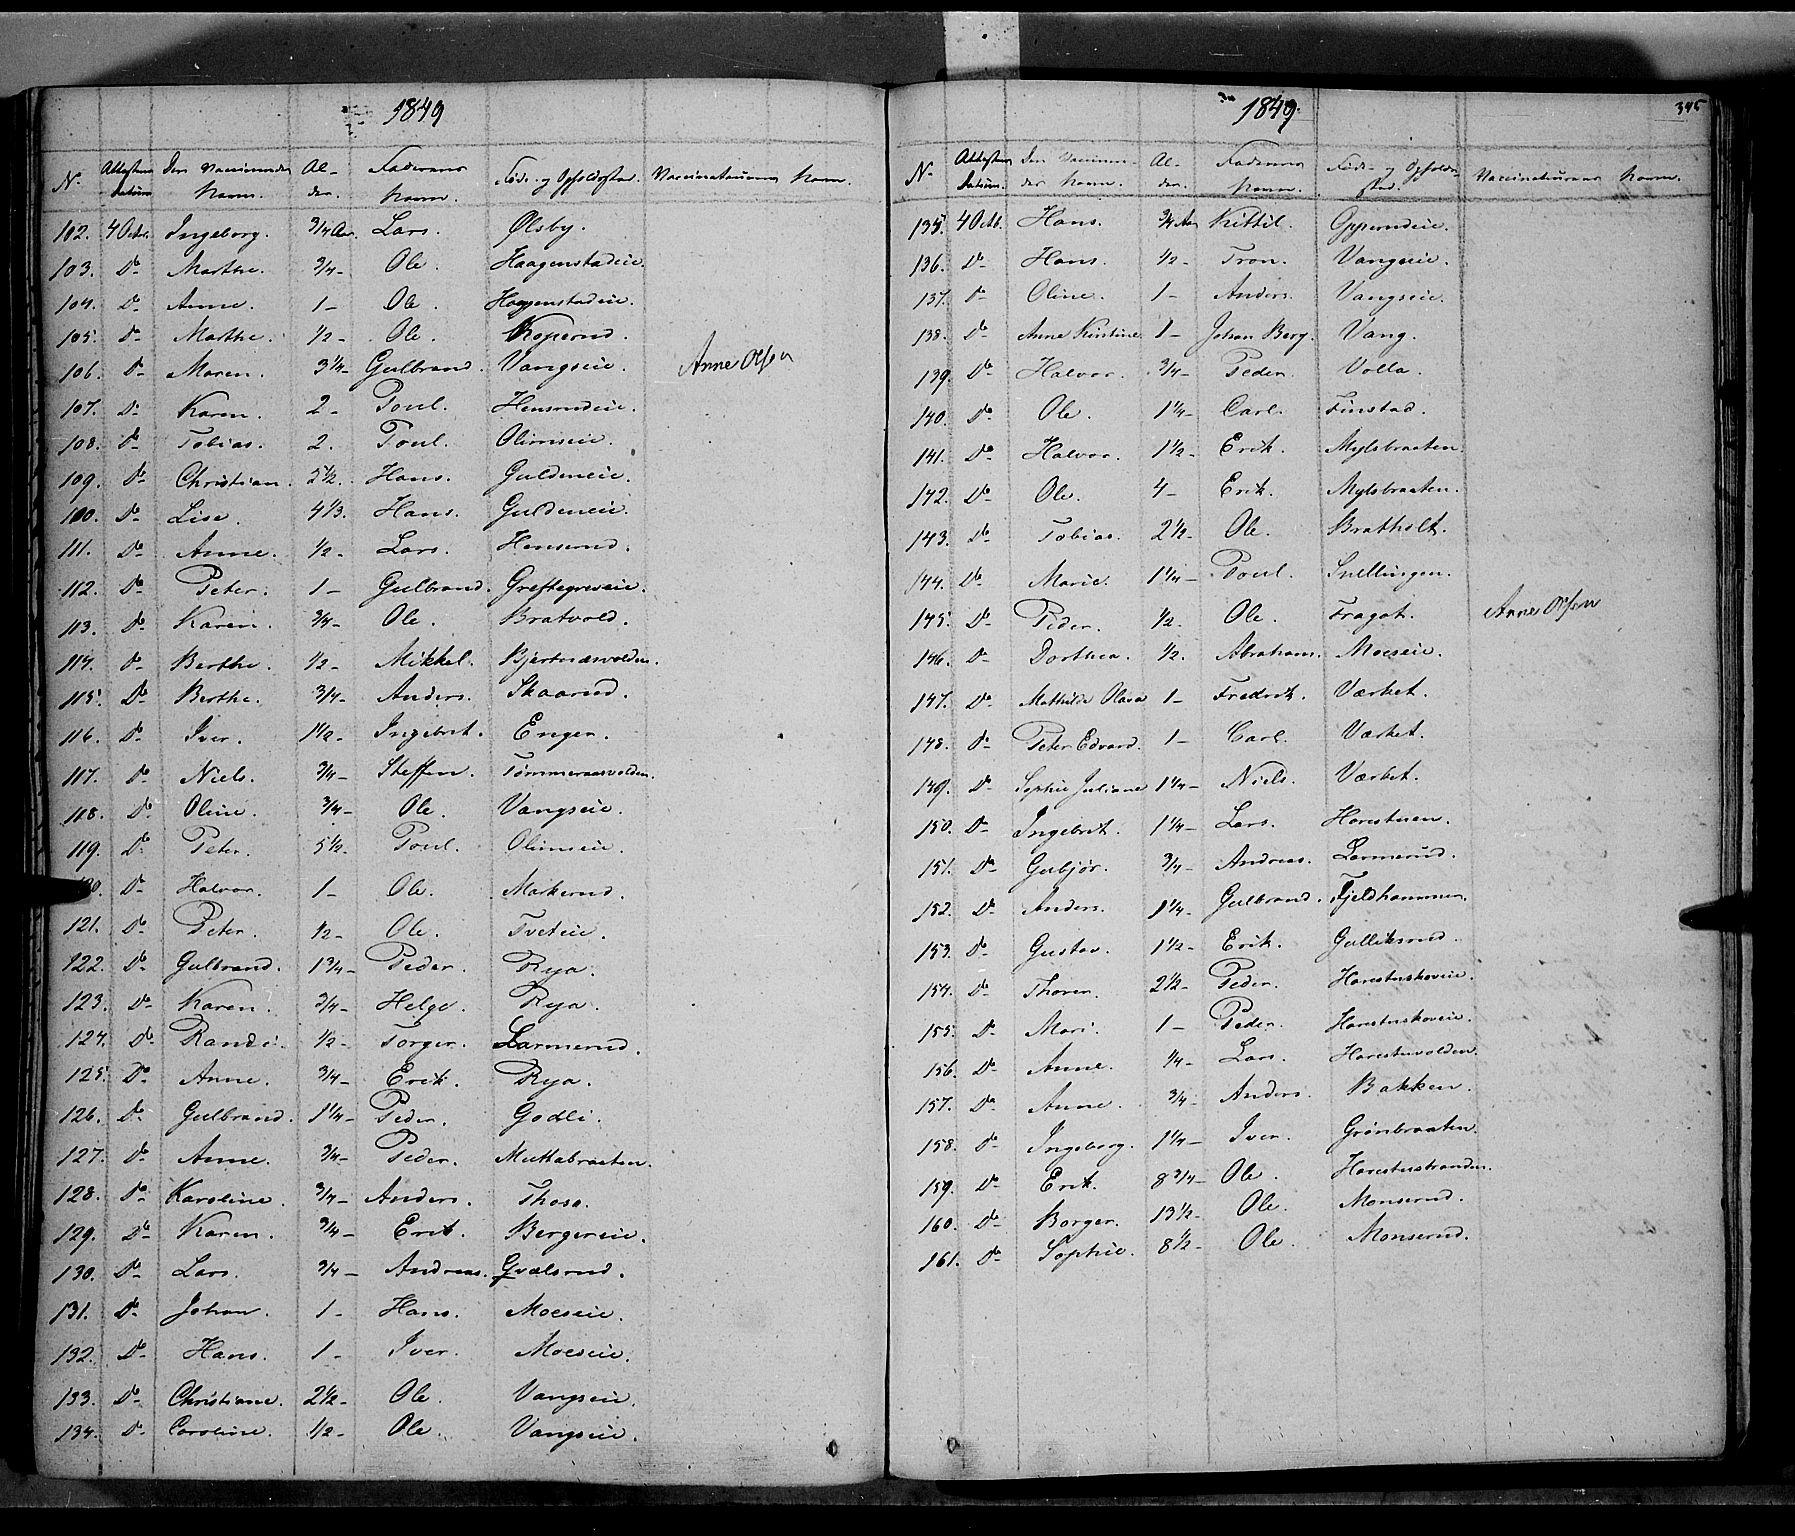 1849
N. Attestens Datum Den Vaccineredes Navn. Al-der. Faderens Navn. Føde- og Opholdssted. Vaccinateurens Navn.
102. 4 Octr. Ingeborg. 3/4 Aar. Lars. Ølsby.
103. Do Marthe. 3/4 - Ole. Haagenstadeie.
104. Do Anne. 1 - Ole. Haagenstadeie.
105. Do Marthe. 1/2 - Ole. Koperud.
106. Do Maren. 3 1/4 - Gulbrand. Vangseie. Anne Olsen
107. Do Karen. 2 - Poul. Hensrudeie.
108. Do Tobias. 2. Poul. Olimseie.
109. Do Christian. 5 1/2. Hans. Guldeneie.
100. Do Lise. 4 1/3. Hans. Guldeneie.
111. Do Anne. 1/2 - Lars. Hensrud.
112. Do Peter. 1 - Gulbrand. Greftegreveie.
113. Do Karen. 3/4 - Ole. Bratvold.
114. Do Berthe. 1/2 - Mikkel. Bjertnæsvolden.
115. Do Berthe. 3/4 - Anders. Skaarud.
116. Do Iver. 1 1/2 - Ingebret. Enger.
117. Do Niels. 3/4 - Steffen. Tømmeraasvolden.
118. Do Oline. 3/4 - Ole. Vangseie.
119. Do Peter. 5 1/2 - Poul. Olimseie.
120. Do Halvor. 1 - Ole. Makerud.
121. Do Peter. 1/2 - Ole. Tveteie.
122. Do Gulbrand. 1 3/4 - Peder. Rya.
123. Do Karen. 3/4 - Helge. Rya.
124. Do Randi. 1/2 - Torger. Larmerud.
125. Do Anne. 3/4 - Erik. Rya.
126. Do Gulbrand. 1 1/4 - Peder. Godli.
127. Do Anne. 3/4 - Peder. Muttabraaten.
128. Do Karoline. 3/4 - Anders. Thosa.
129. Do Karen. 3/4 - Erik. Bergereie.
130. Do Lars. 3/4 - Andreas. Gvælsrud.
131. Do Johan. 1 - Hans. Moeseie.
132. Do Hans. 1 - Iver. Moeseie.
133. Do Christiane. 2 1/2 - Ole. Vangseie.
134. Do Caroline. 1/2 - Ole. Vangseie.
1849. 345
N. Attestens Datum. Den Vaccinere-des Navn. Al-der. Faderens Navn. Føde- og Opholds-sted. Vaccinateurens Navn.
135. 4 Octb. Hans. 3/4 Aar Kittil. Opperudeie.
136. Do Hans. 1/2 - Tron. Vangseie.
137. Do Oline. 1 - Anders. Vangseie.
138. Do Anne Kirstine 1 - Johan Berg. Vang.
139. Do Halvor. 3/4 - Peder. Volla.
140. Do Ole. 1 1/4 - Carl. Finstad.
141. Do Halvor. 1 1/2 - Erik. Mylsbraaten.
142. Do Ole. 4 - Erik. Mylsbraaten.
143. Do Tobias. 2 1/2 - Ole. Bratholt.
144. Do Marie. 1 1/4 - Poul. Snellingen.
145. Do Peder. 1/2 - Ole. Fragot. Anne Olsen
146. Do Dorthea. 1/2. Abraham. Moeseie.
147. Do Mathilde Olava 1 - Fredrik. Værket.
148. Do Peter Edvard. 1 - Carl. Værket.
149. Do Sophie Juliane 1 1/4 - Niels. Værket.
150. Do Ingebret. 1 1/4 - Lars. Harestuen.
151. Do Gubjør. 3/4 - Andreas. Larmerud.
152. Do Anders. 1 1/4 - Gulbrand. Fjeldhammer.
153. Do Gustav. 1 1/2 - Erik. Gulliksrud.
154. Do Thorer. 2 1/2 - Peder. Harestuskoveie.
155. Do Mari. 1 - Peder. Harestuskoveie.
156. Do Anne. 1/4 - Lars. Harestuvolden.
157. Do Anne. 3/4 - Anders. Bakken.
158. Do Ingeborg. 1 1/4 - Iver. Grønbraaten.
159. Do Erik. 8 3/4 - Ole. Harestustranden.
160. Do Borger. 13 1/2 - Ole. Monserud.
161. Do Sophie. 8 1/2 - Ole. Monserud.